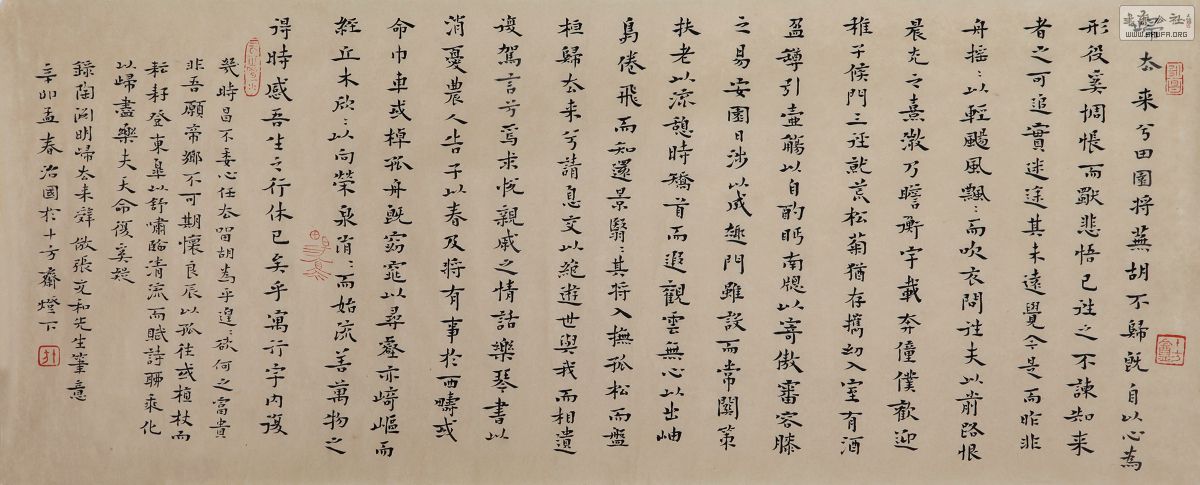 歸去来兮田園将蕪胡不歸既自以心為
形役奚惆悵而獨悲悟已往之不諫知来
者之可追實迷途其未遠覺今是而昨非
舟摇:以輕颺風飄:而吹衣問征夫以前路恨
晨光之熹微乃瞻衡宇載奔僮僕歡迎
稚子候門三徑就荒松菊猶存攜幼入室有酒
盈罇引壺觴以自酌眄南牕以寄傲審容膝
之易安園日涉以成趣門雖設而常關策
扶老以流憩時矯首而遐觀雲無心以出岫
鳥倦飛而知還景翳:其将入撫孤松而盤
桓歸去来兮請息交以絶遊世與我而相遺
復駕言兮焉求悦親戚之情話樂琴書以
消憂農人告予以春及将有事於西疇或
命巾車或棹孤舟既窈窕以尋壑亦崎嶇而
經丘木欣:以向榮泉涓:而始流善萬物之
得時感吾生之行休已矣乎寓行宇内復
幾時曷不委心任去留胡為乎遑:欲何之富貴
非吾願帝鄉不可期懷良辰以孤往或植杖而
耘耔登東皋以舒嘯臨清流而賦詩聊乘化
以歸盡樂夫天命復奚疑
錄陶淵明歸去来辭倣張文和先生筆意
辛卯孟春治國於十方齋燈下
書法公社
WWW.SHUFA.ORG